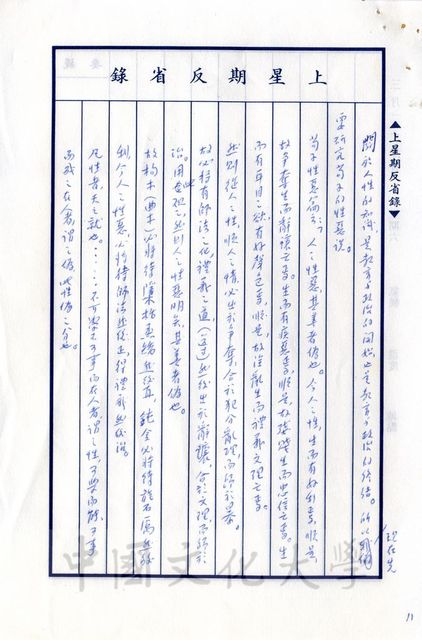 上星期反省錄
▲上星期反省錄▼
關於人性的知識,是教育與政治的開始,也是教育與政治的終結。所以我們
現在先
要研究荀子的性惡說。
荀子性惡篇云:人之性惡,其善者偽也。今人之性,生而有好利焉,順是
故爭奪生而辭讓亡焉。生而有疾惡焉,順是,故殘賊生而忠信亡焉。生
而有耳目之欲,有好聲色焉,順是,故淫亂生而禮義文理亡焉。
然則從人之性,順人之情,必出於爭奪,合於犯分亂理,而歸於暴。
故必將有師法之化,禮義之道,然後出於辭讓,合於文理,而歸於
治。用此觀之,然則人之性惡明矣,其善者偽也。
故枸木必將待檃栝烝矯然後直,鈍金必將待礱厲然後
利,今人之性惡,必將待師法然後正,得禮義然後治。
凡性者,天之就也。……不可學不可事而在人者,謂之性,可學而能,可事
而成之在人者,謂之偽,是性偽之分也。
中國文化大學
11